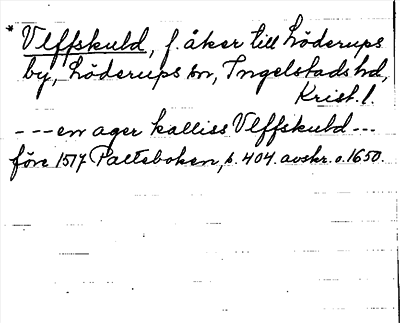 * Vlffskuld, f. åker till Löderups
by, Löderups sn, Ingelstads hd,
Krist. l.
--- en ager kalliss Vlffskuld ---
före 1517 Palteboken, s. 404. avskr. o. 1650.